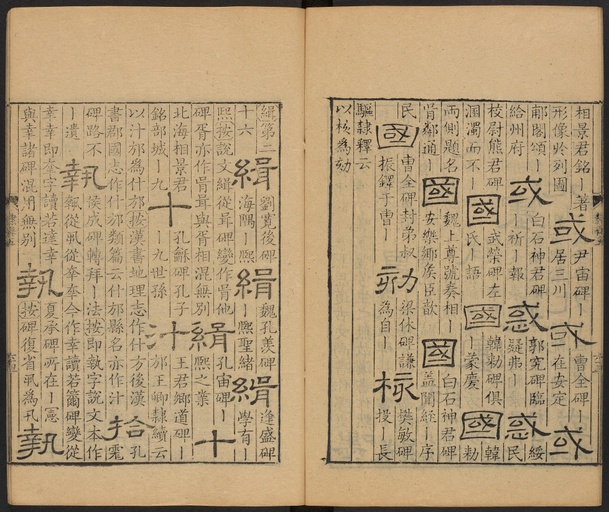 相景君銘｜著
形像於列圖
或
尹宙碑｜
居三川
或
曹全碑｜
在安定
或
郙閣頌｜
給州府
或
白石神君碑
｜祈｜報
惑
郭究碑臨
疑弗｜
惑
綏
民
校尉熊君碑
溷濁而不｜
國
武榮碑左
｜氏｜語
國
韓勑碑俱
｜蒙慶
國
韓
勑
兩側題名
胥鄰通｜
國
魏上尊號奏相｜
安樂鄉侯臣歆
國
白石神君碑
蓋聞經｜序
民
國
曹全碑封弟叔
振鐸于曹｜
劾
梁休碑謙
為自｜
核
樊敏碑
投｜長
驅隸釋云
以核為劾
緝第二
十六
緝
劉寬後碑
海隅｜熙
緝
魏孔羨碑
｜熙聖緒
緝
逢盛碑
學有｜
熙按說文緝從咠碑變作咠他
碑胥亦作咠咠與胥相混無別
緝
孔宙碑｜
熙之業
十
北海相景君
銘部城｜九
十
孔龢碑孔子
｜九世孫
汁
王君鄉道碑｜
邡王卿隸續云
以汁邡為什邡按漢書地理志作什方後漢
書郡國志作什邡類篇云什邡縣名亦作汁
拾
孔
碑路不
｜遺
執
侯成碑轉拜｜法按即執字說文本作
從丮從㚔㚔今作幸讀若籋碑變從
幸幸即㚔字讀若達幸
與幸諸碑混用無別
執
夏承碑所在｜憲
按碑復省丮為丸
執